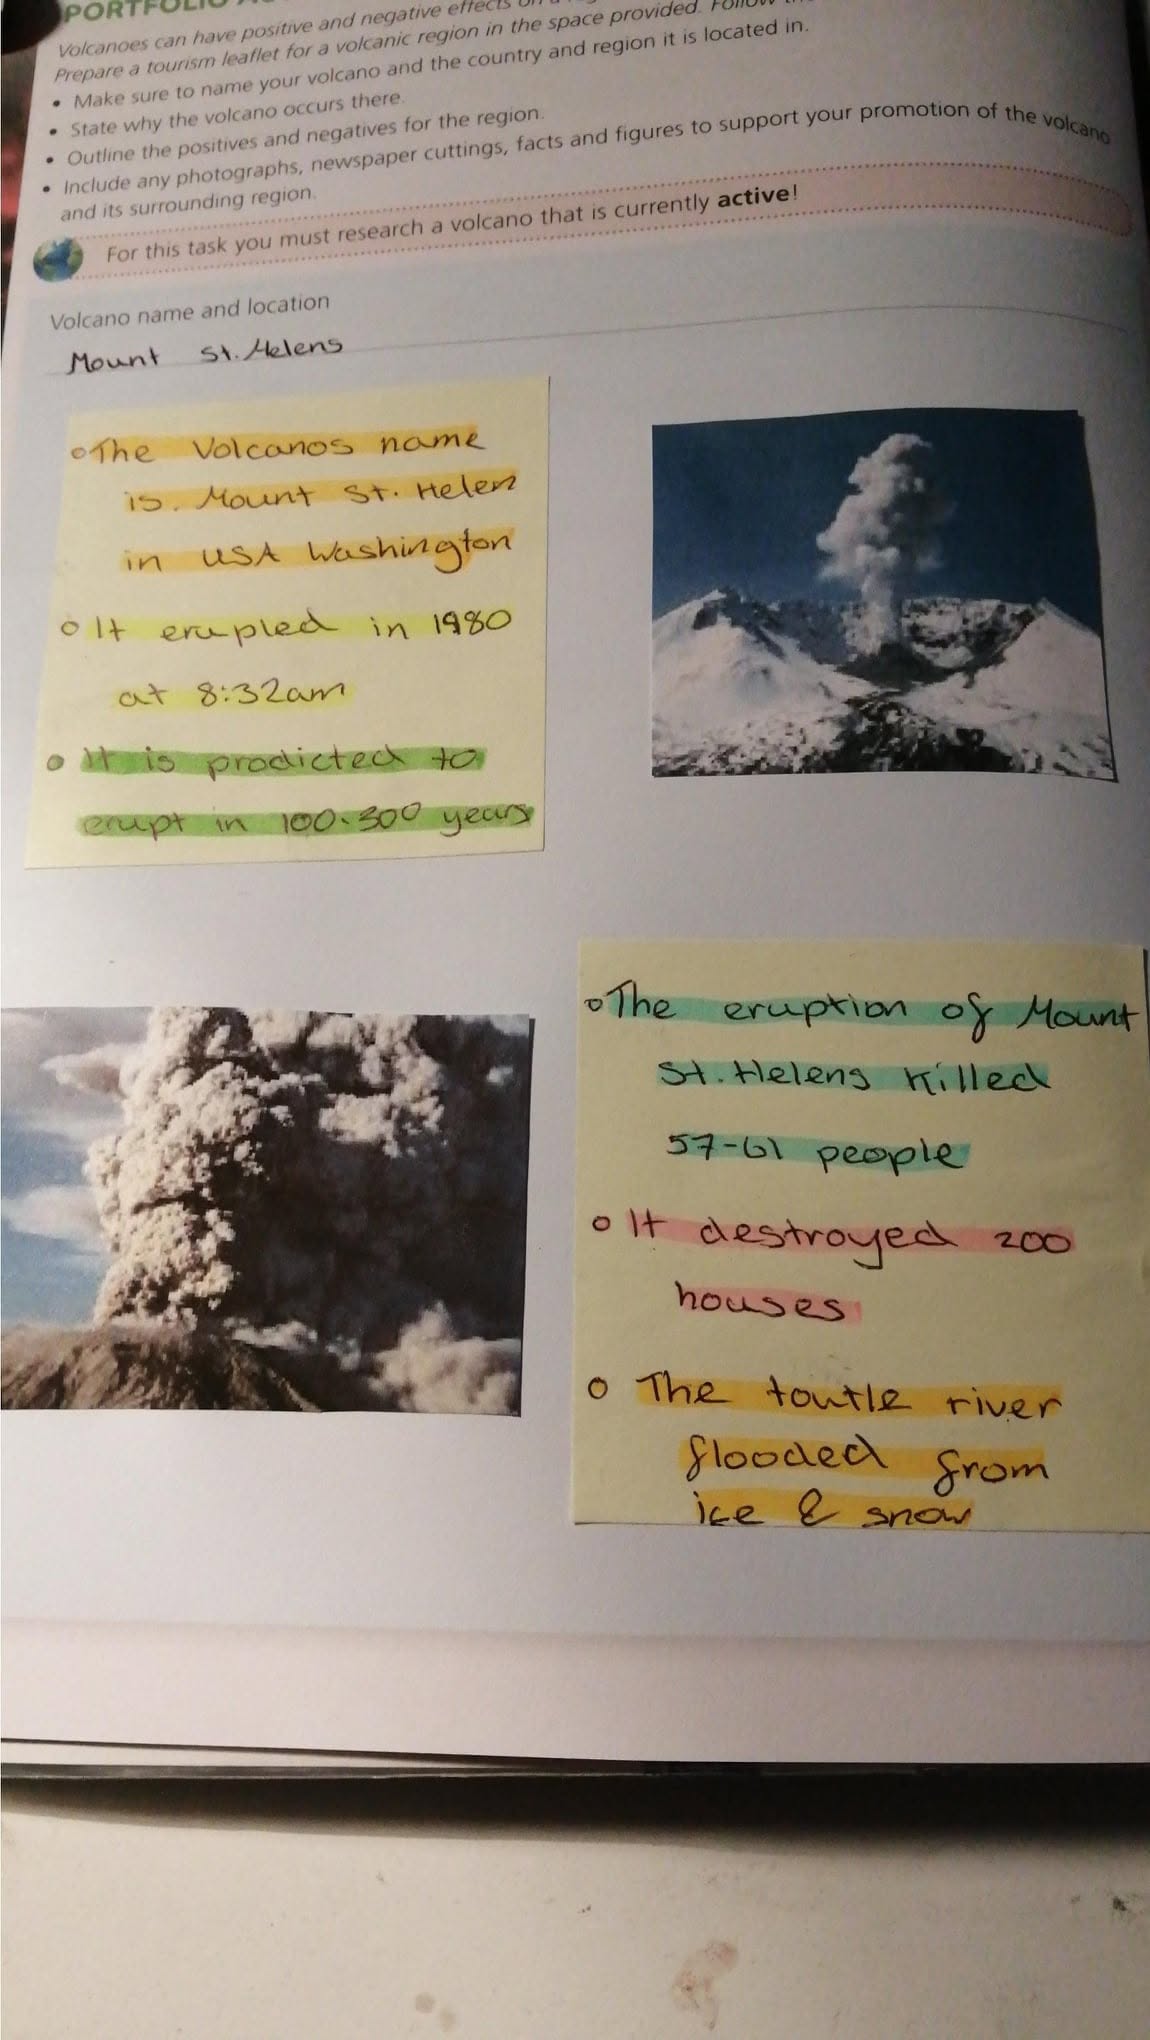 PORTFOLIO
Volcanoes can have positive and negative effects on a
Prepare a tourism leaflet for a volcanic region in the space provided. Follow
• Make sure to name your volcano and the country and region it is located in.
• State why the volcano occurs there.
• Outline the positives and negatives for the region.
• Include any photographs, newspaper cuttings, facts and figures to support your promotion of the volcano
and its surrounding region.
For this task you must research a volcano that is currently active!
Volcano name and location
Mount St. Helens
The Volcanos name
is. Mount St. Helen
in USA Washington
It erupled in 1980
at 8:32am
It is prodicted to
erupt in 100-300 years
The eruption of Mount
St. Helens Killed
57-61 people
It destroyed 200
houses
The toutle river
flooded from
ice & snow